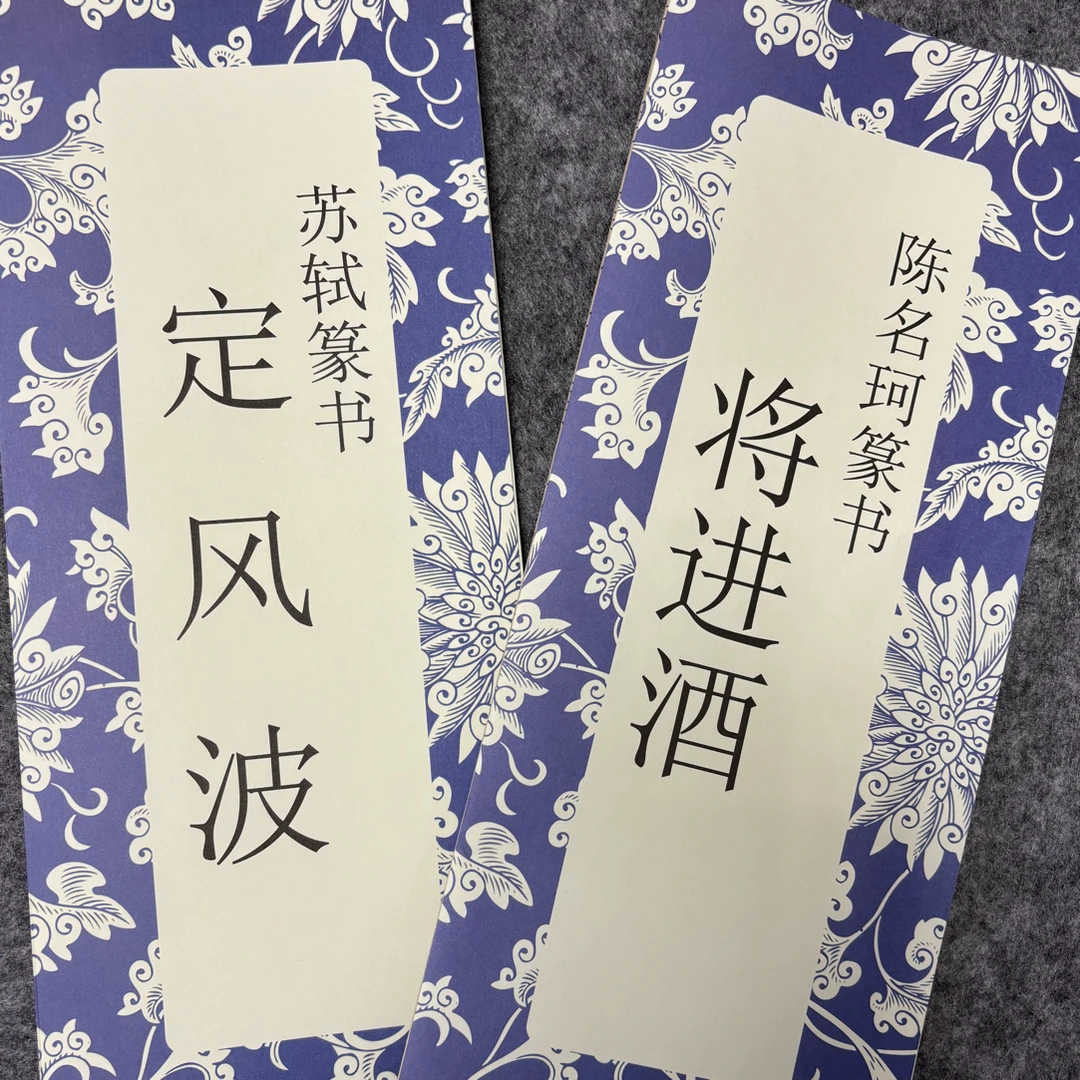 苏轼篆书
定风波
陈名珂篆书
将进酒